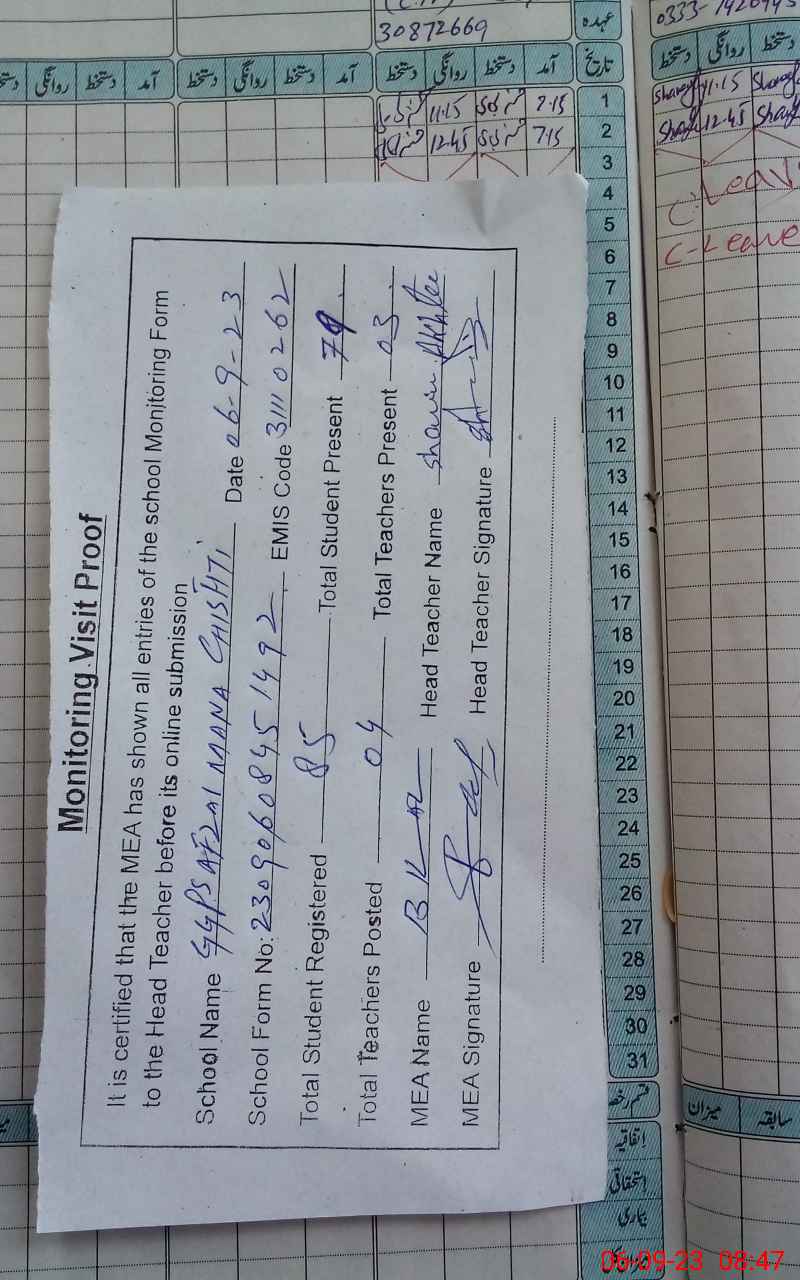 Monitoring Visit Proof
It is certified that the MEA has shown all entries of the school Monitoring Form
to the Head Teacher before its online submission
School Name GGPS AFZAL MANA CHISHTI Date 06-9-23
School Form No: 23090608451492 EMIS Code 31110262
Total Student Registered 85 Total Student Present
Total Teachers Posted 04 Total Teachers Present 03
MEA Name Head Teacher Name
MEA Signature Head Teacher Signature
30872669
عہدہ
0333-
تاریخ
آمد دستخط روانگی دستخط
آمد دستخط روانگی دستخط
دستخط روانگی دستخط
7.15 11.15
7.15 12.45
11.15
12.45
C-Leave
C-Leave
1
2
3
4
5
6
7
8
9
10
11
12
13
14
15
16
17
18
19
20
21
22
23
24
25
26
27
28
29
30
31
میزان
سابقہ
اتفاقیہ
استحقاقی
بیماری
06-09-23 08:47